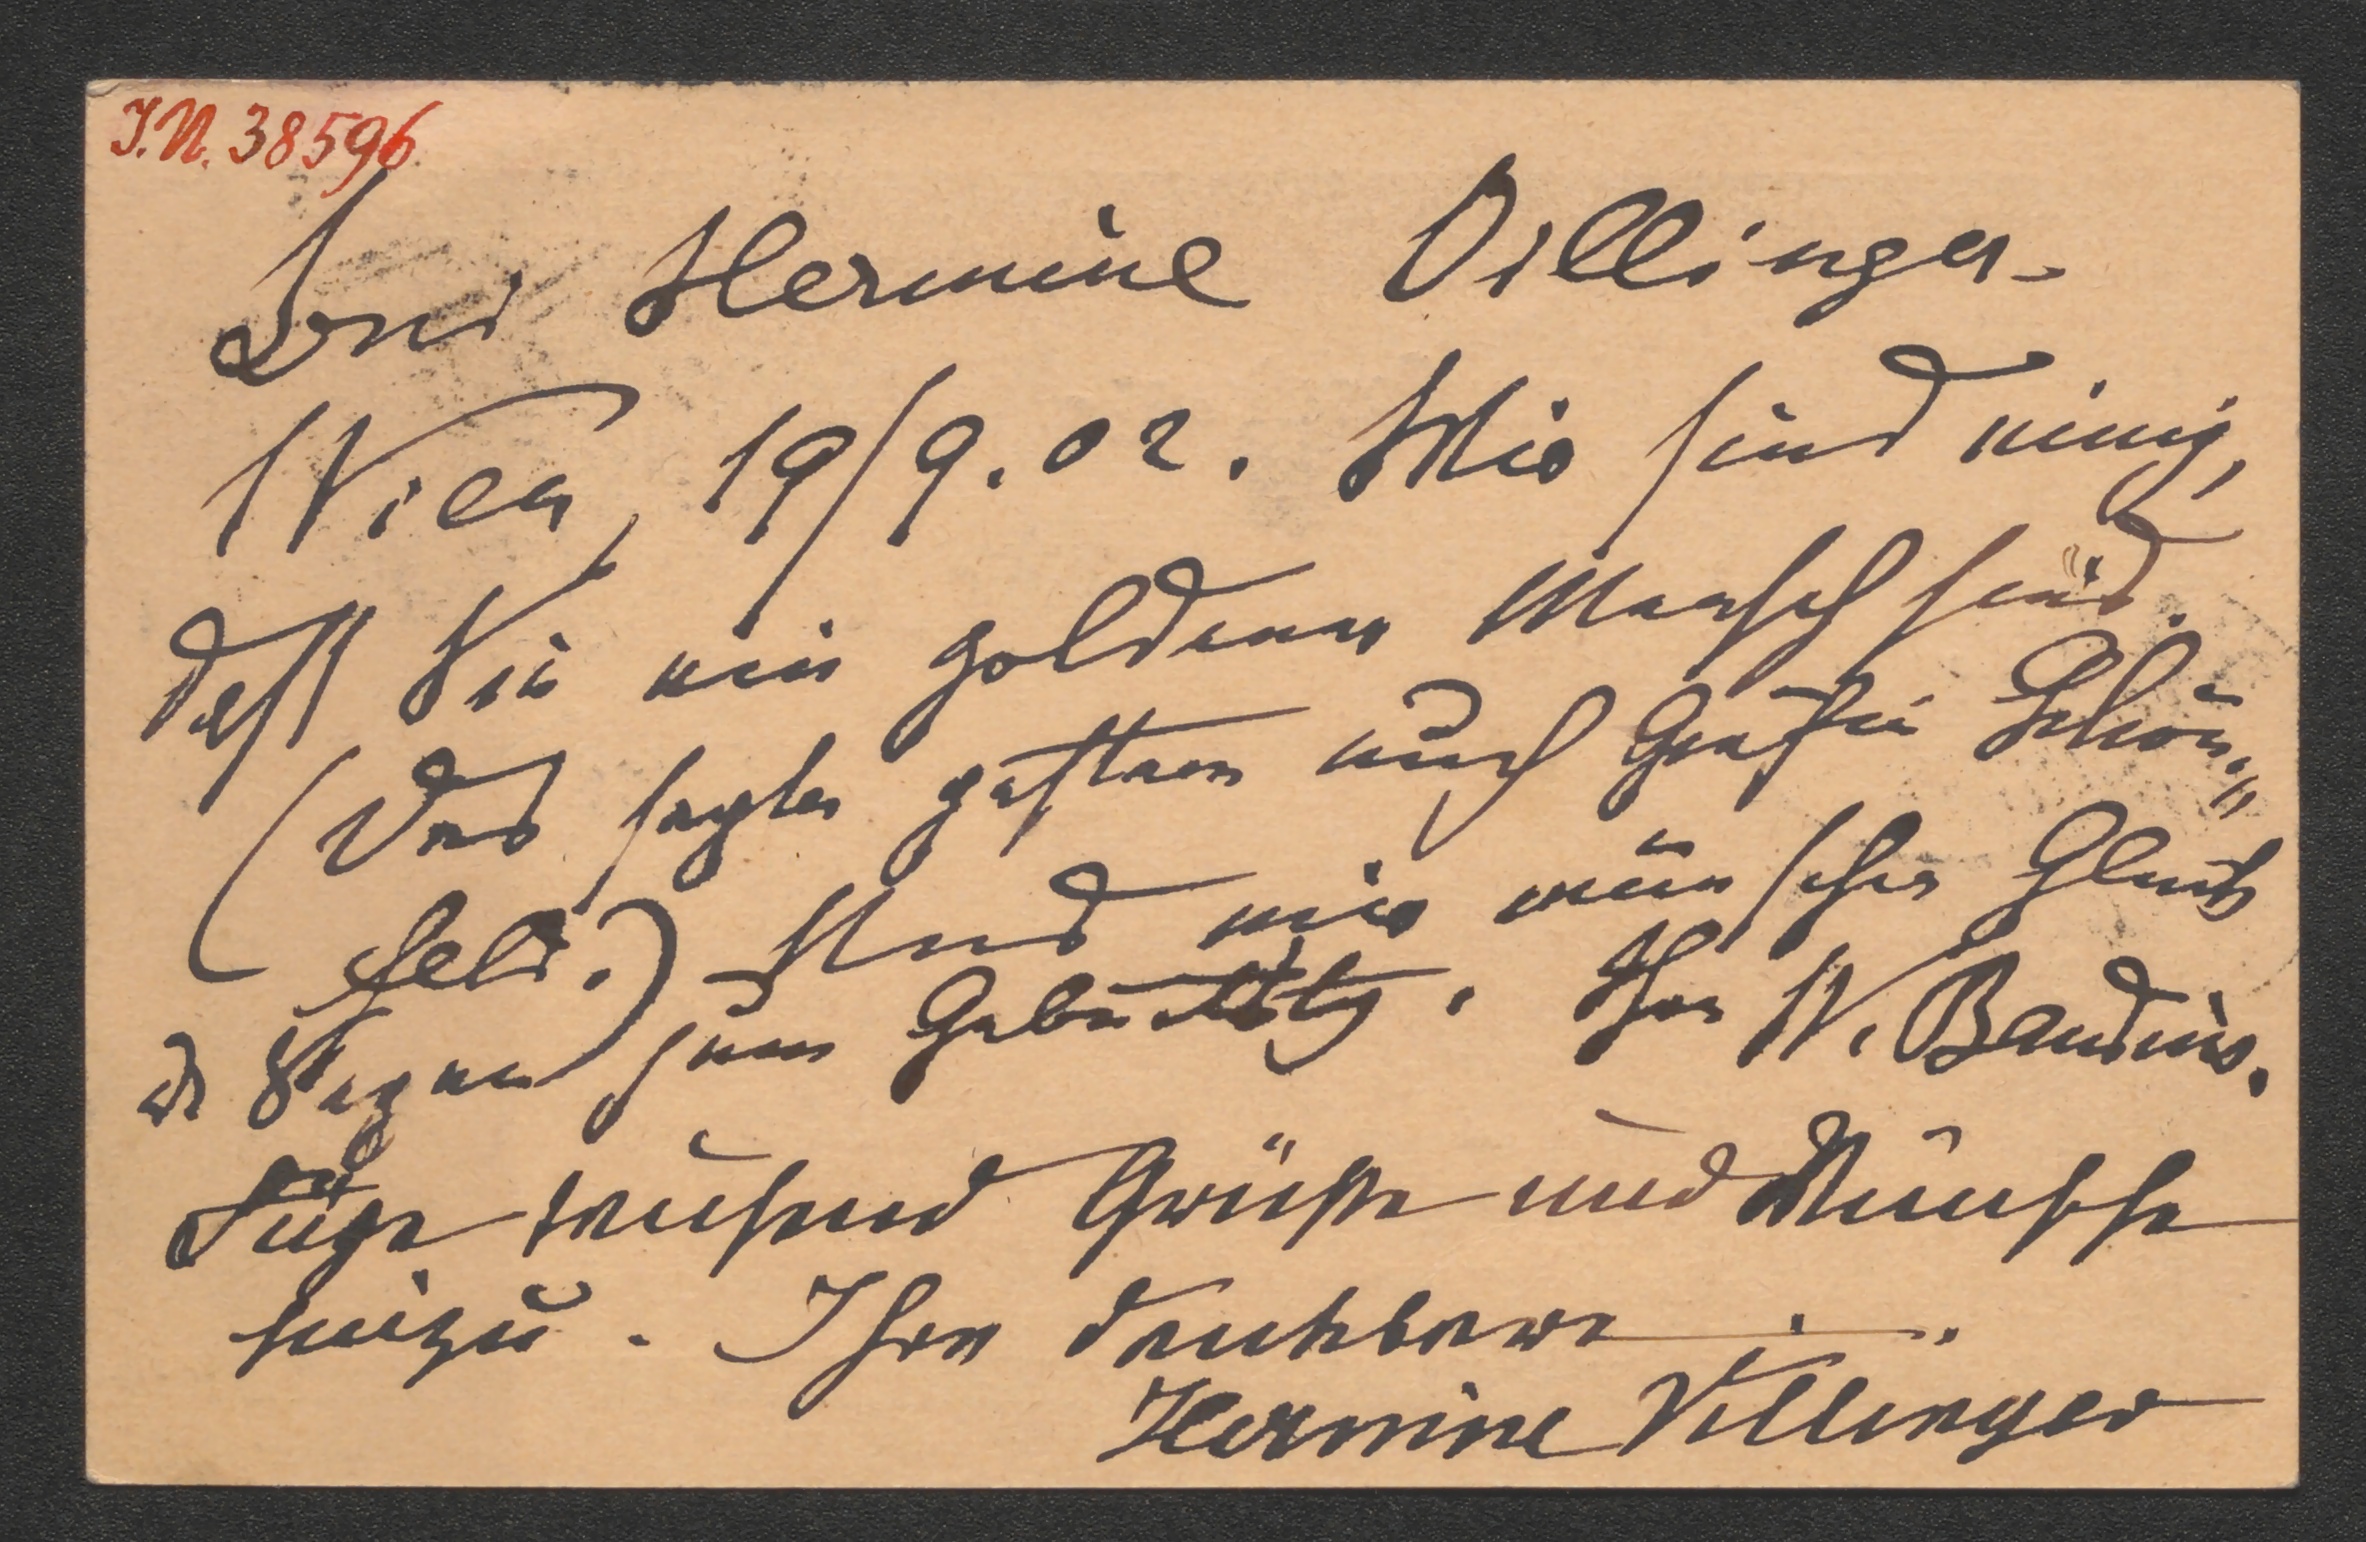 I.N. 38596
Bei Hermine Villinger.
Wien, 19/9.02. Wir sind einig,
daß Sie ein goldener Mensch sind.
(Das sagte gestern auch Gräfin Schön=
feld.) Und wir wünschen Glück
u Segen zum Geburtstg. Ihr W. Baudius.
Füge tausend Grüße und Wünsche
hinzu. Ihre dankbare
Hermine Villinger